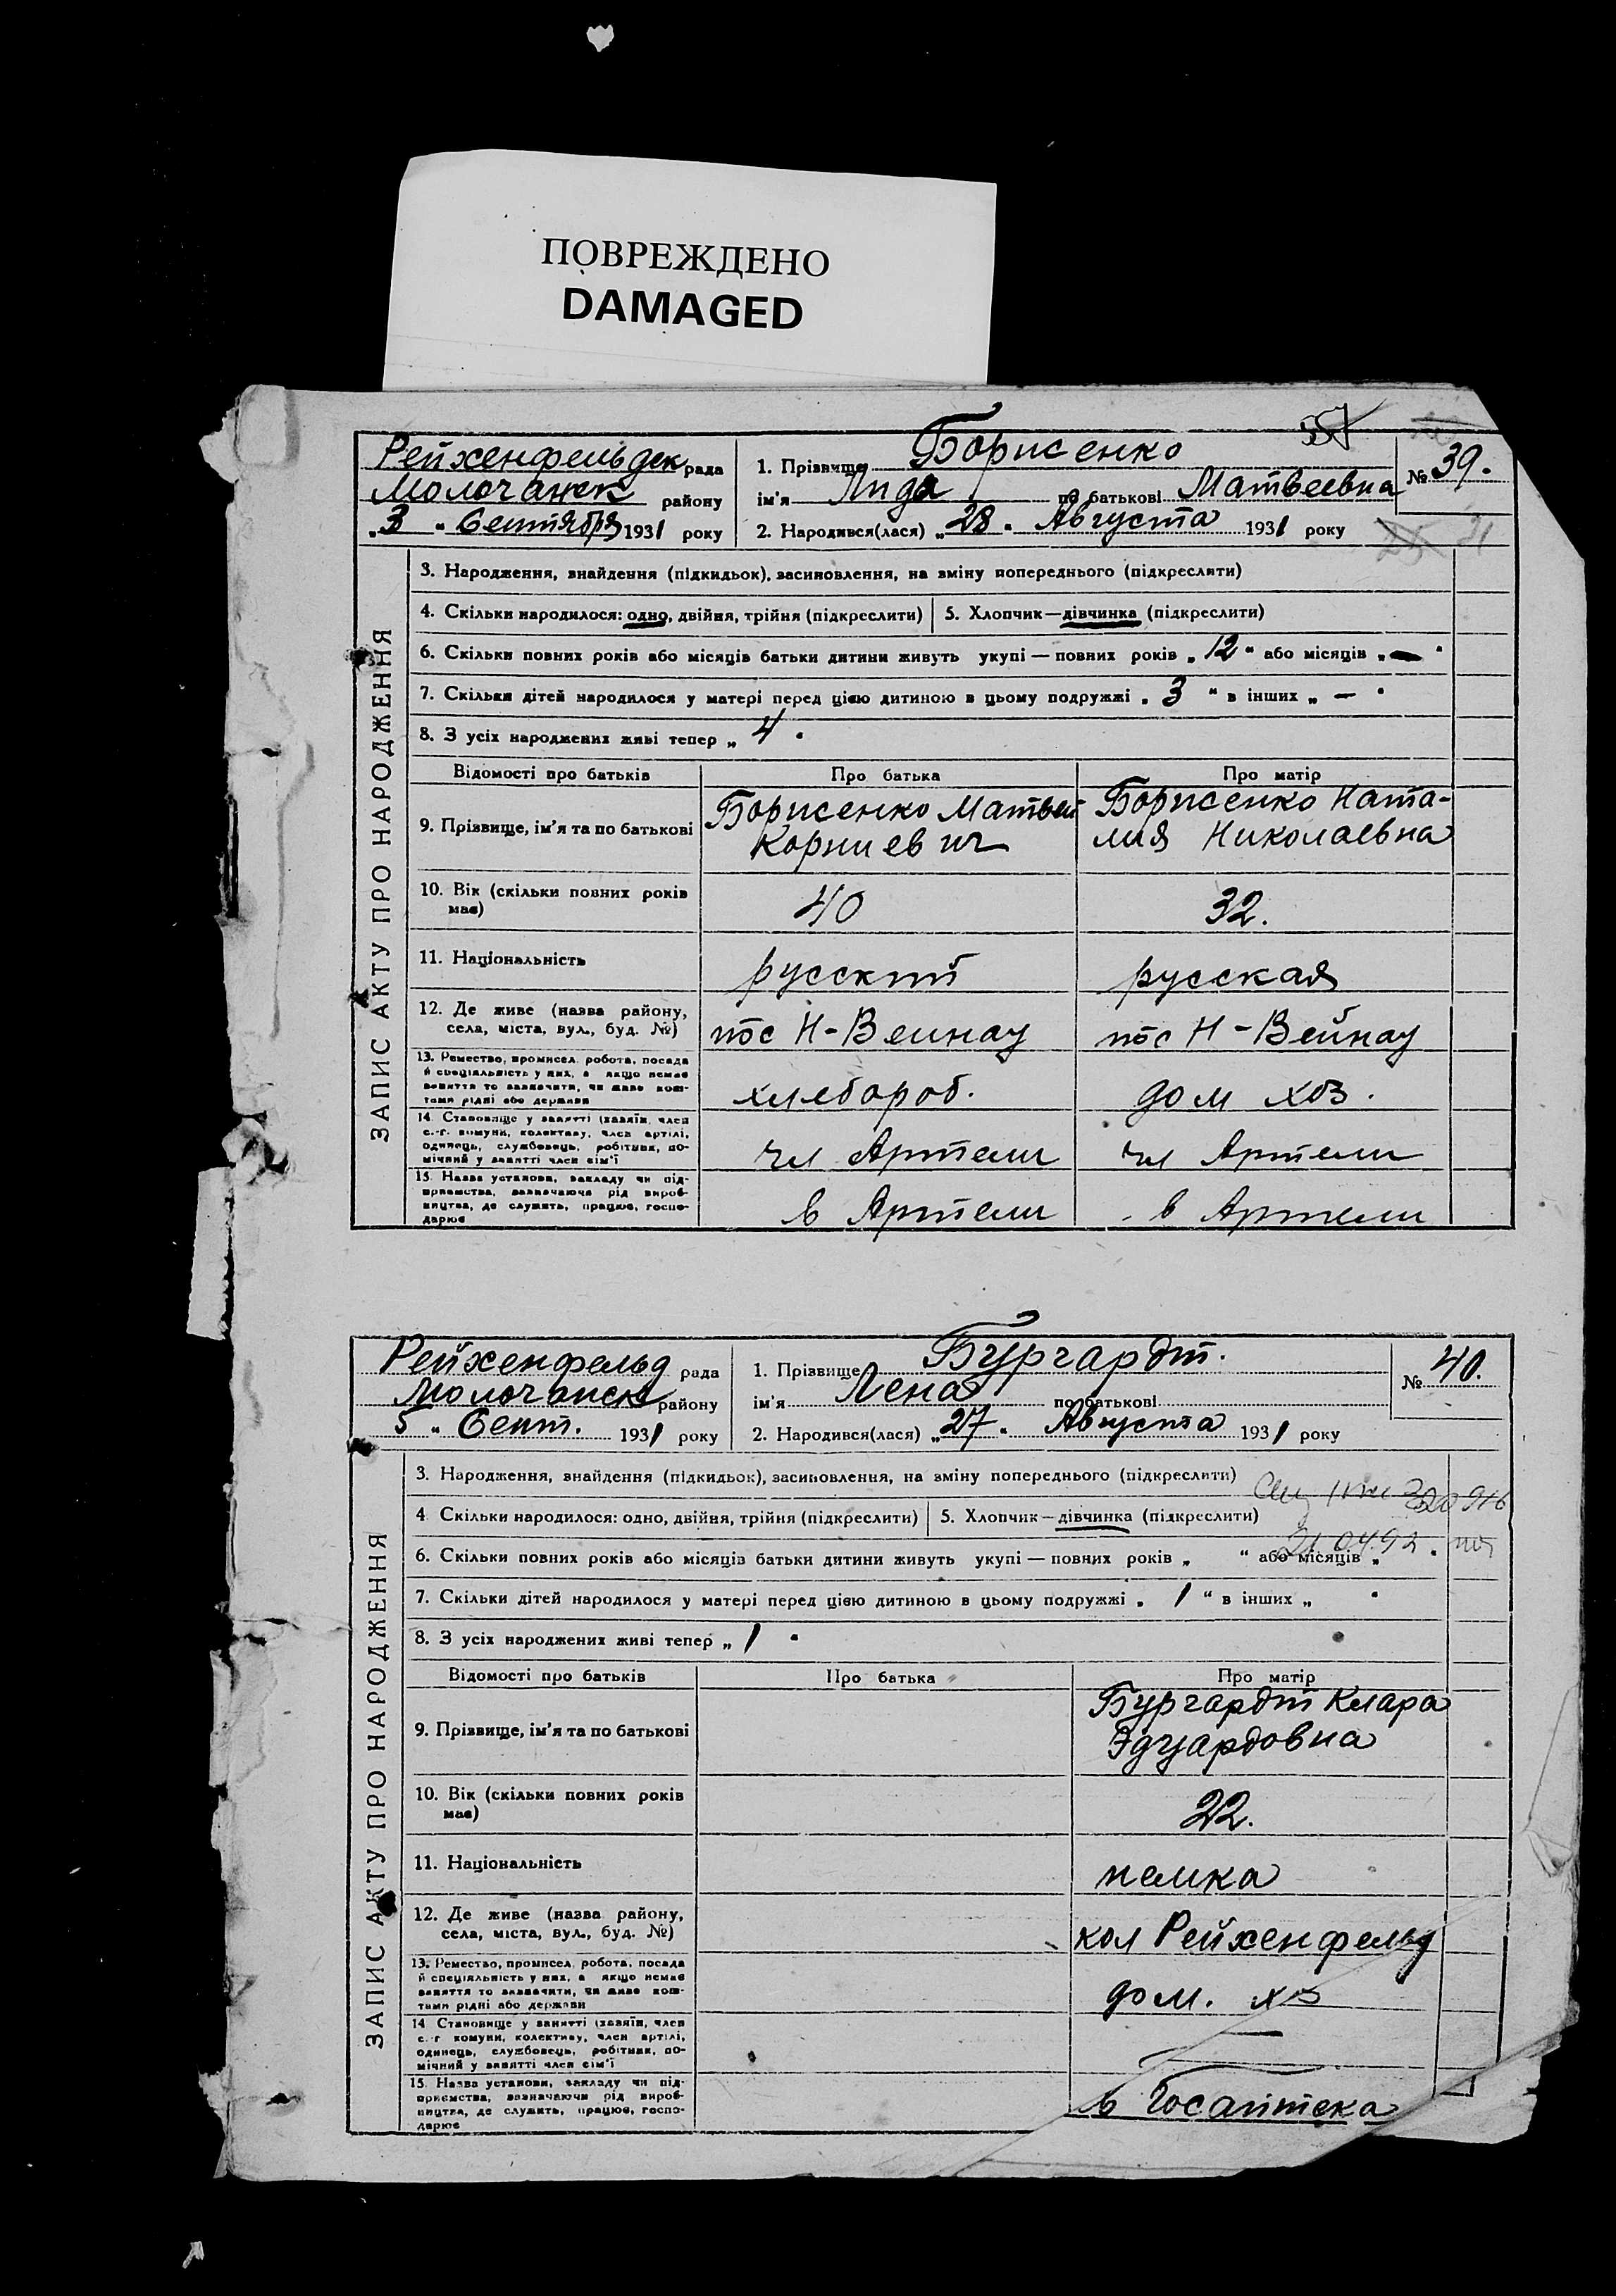 ПОВРЕЖДЕНО
DAMAGED
557
Рейхенфельдск рада
Молочанск району
„3 " Сентября 1931 року
1. Прізвище Борисенко
№ 39.
ім'я Лида по батькові Матвеевна
2. Народився(лася) „28 " Августа 1931 року
31
ЗАПИС АКТУ ПРО НАРОДЖЕННЯ
3. Народження, знайдення (підкидьок), засиновлення, на зміну попереднього (підкреслити)
4. Скільки народилося: одно, двійня, трійня (підкреслити) 5. Хлопчик—дівчинка (підкреслити)
6. Скільки повних років або місяців батьки дитини живуть укупі — повних років „ 12 " або місяців „ — "
7. Скільки дітей народилося у матері перед цією дитиною в цьому подружжі „ 3 " в інших „ — "
8. З усіх народжених живі тепер „ 4 "
Відомості про батьків Про батька Про матір
9. Прізвище, ім'я та по батькові
Борисенко Матвей
Корниевич
Борисенко Ната-
лия Николаевна
10. Вік (скільки повних років
має)
40
32.
11. Національність
русский
русская
12. Де живе (назва району,
села, міста, вул., буд. №)
пос Н-Вейнау
пос Н-Вейнау
13. Ремество, промисел, робота, посада
й спеціяльність у них, а якщо немає
заняття то зазначити, чи живе кош-
тами рідні або держави
хлебороб.
дом хоз.
14. Становище у занятті (хазяїн, член
с.-г. комуни, колективу, член артілі,
одинець, службовець, робітник, по-
мічний у занятті член сім'ї
чл Артели
чл Артели
15. Назва установи, закладу чи під-
приємства, зазначаючи рід вироб-
ництва, де служить, працює, госпо-
дарює
в Артели
в Артели
Рейхенфельд рада
Молочанск району
5 " Сент. 1931 року
1. Прізвище Бургардт.
№ 40.
ім'я Лена по батькові
2. Народився(лася) „27 " Августа 1931 року
ЗАПИС АКТУ ПРО НАРОДЖЕННЯ
3. Народження, знайдення (підкидьок), засиновлення, на зміну попереднього (підкреслити)
4 Скільки народилося: одно, двійня, трійня (підкреслити) 5. Хлопчик—дівчинка (підкреслити)
21.04.92
6. Скільки повних років або місяців батьки дитини живуть укупі — повних років „ " або місяців „ "
7. Скільки дітей народилося у матері перед цією дитиною в цьому подружжі „ 1 " в інших „ "
8. З усіх народжених живі тепер „ 1 "
Відомості про батьків Про батька Про матір
9. Прізвище, ім'я та по батькові
Бургардт Клара
Эдуардовна
10. Вік (скільки повних років
має)
22.
11. Національність
немка
12. Де живе (назва району,
села, міста, вул., буд. №)
кол Рейхенфельд
13. Ремество, промисел, робота, посада
й спеціяльність у них, а якщо немає
заняття то зазначити, чи живе кош-
тами рідні або держави
дом. хоз
14 Становище у занятті (хазяїн, член
с.-г комуни, колективу, член артілі,
одинець, службовець, робітник, по-
мічний у занятті член сім'ї
—
15. Назва установи, закладу чи під-
приємства, зазначаючи рід вироб-
ництва, де служить, працює, госпо-
дарює
в Госаптека